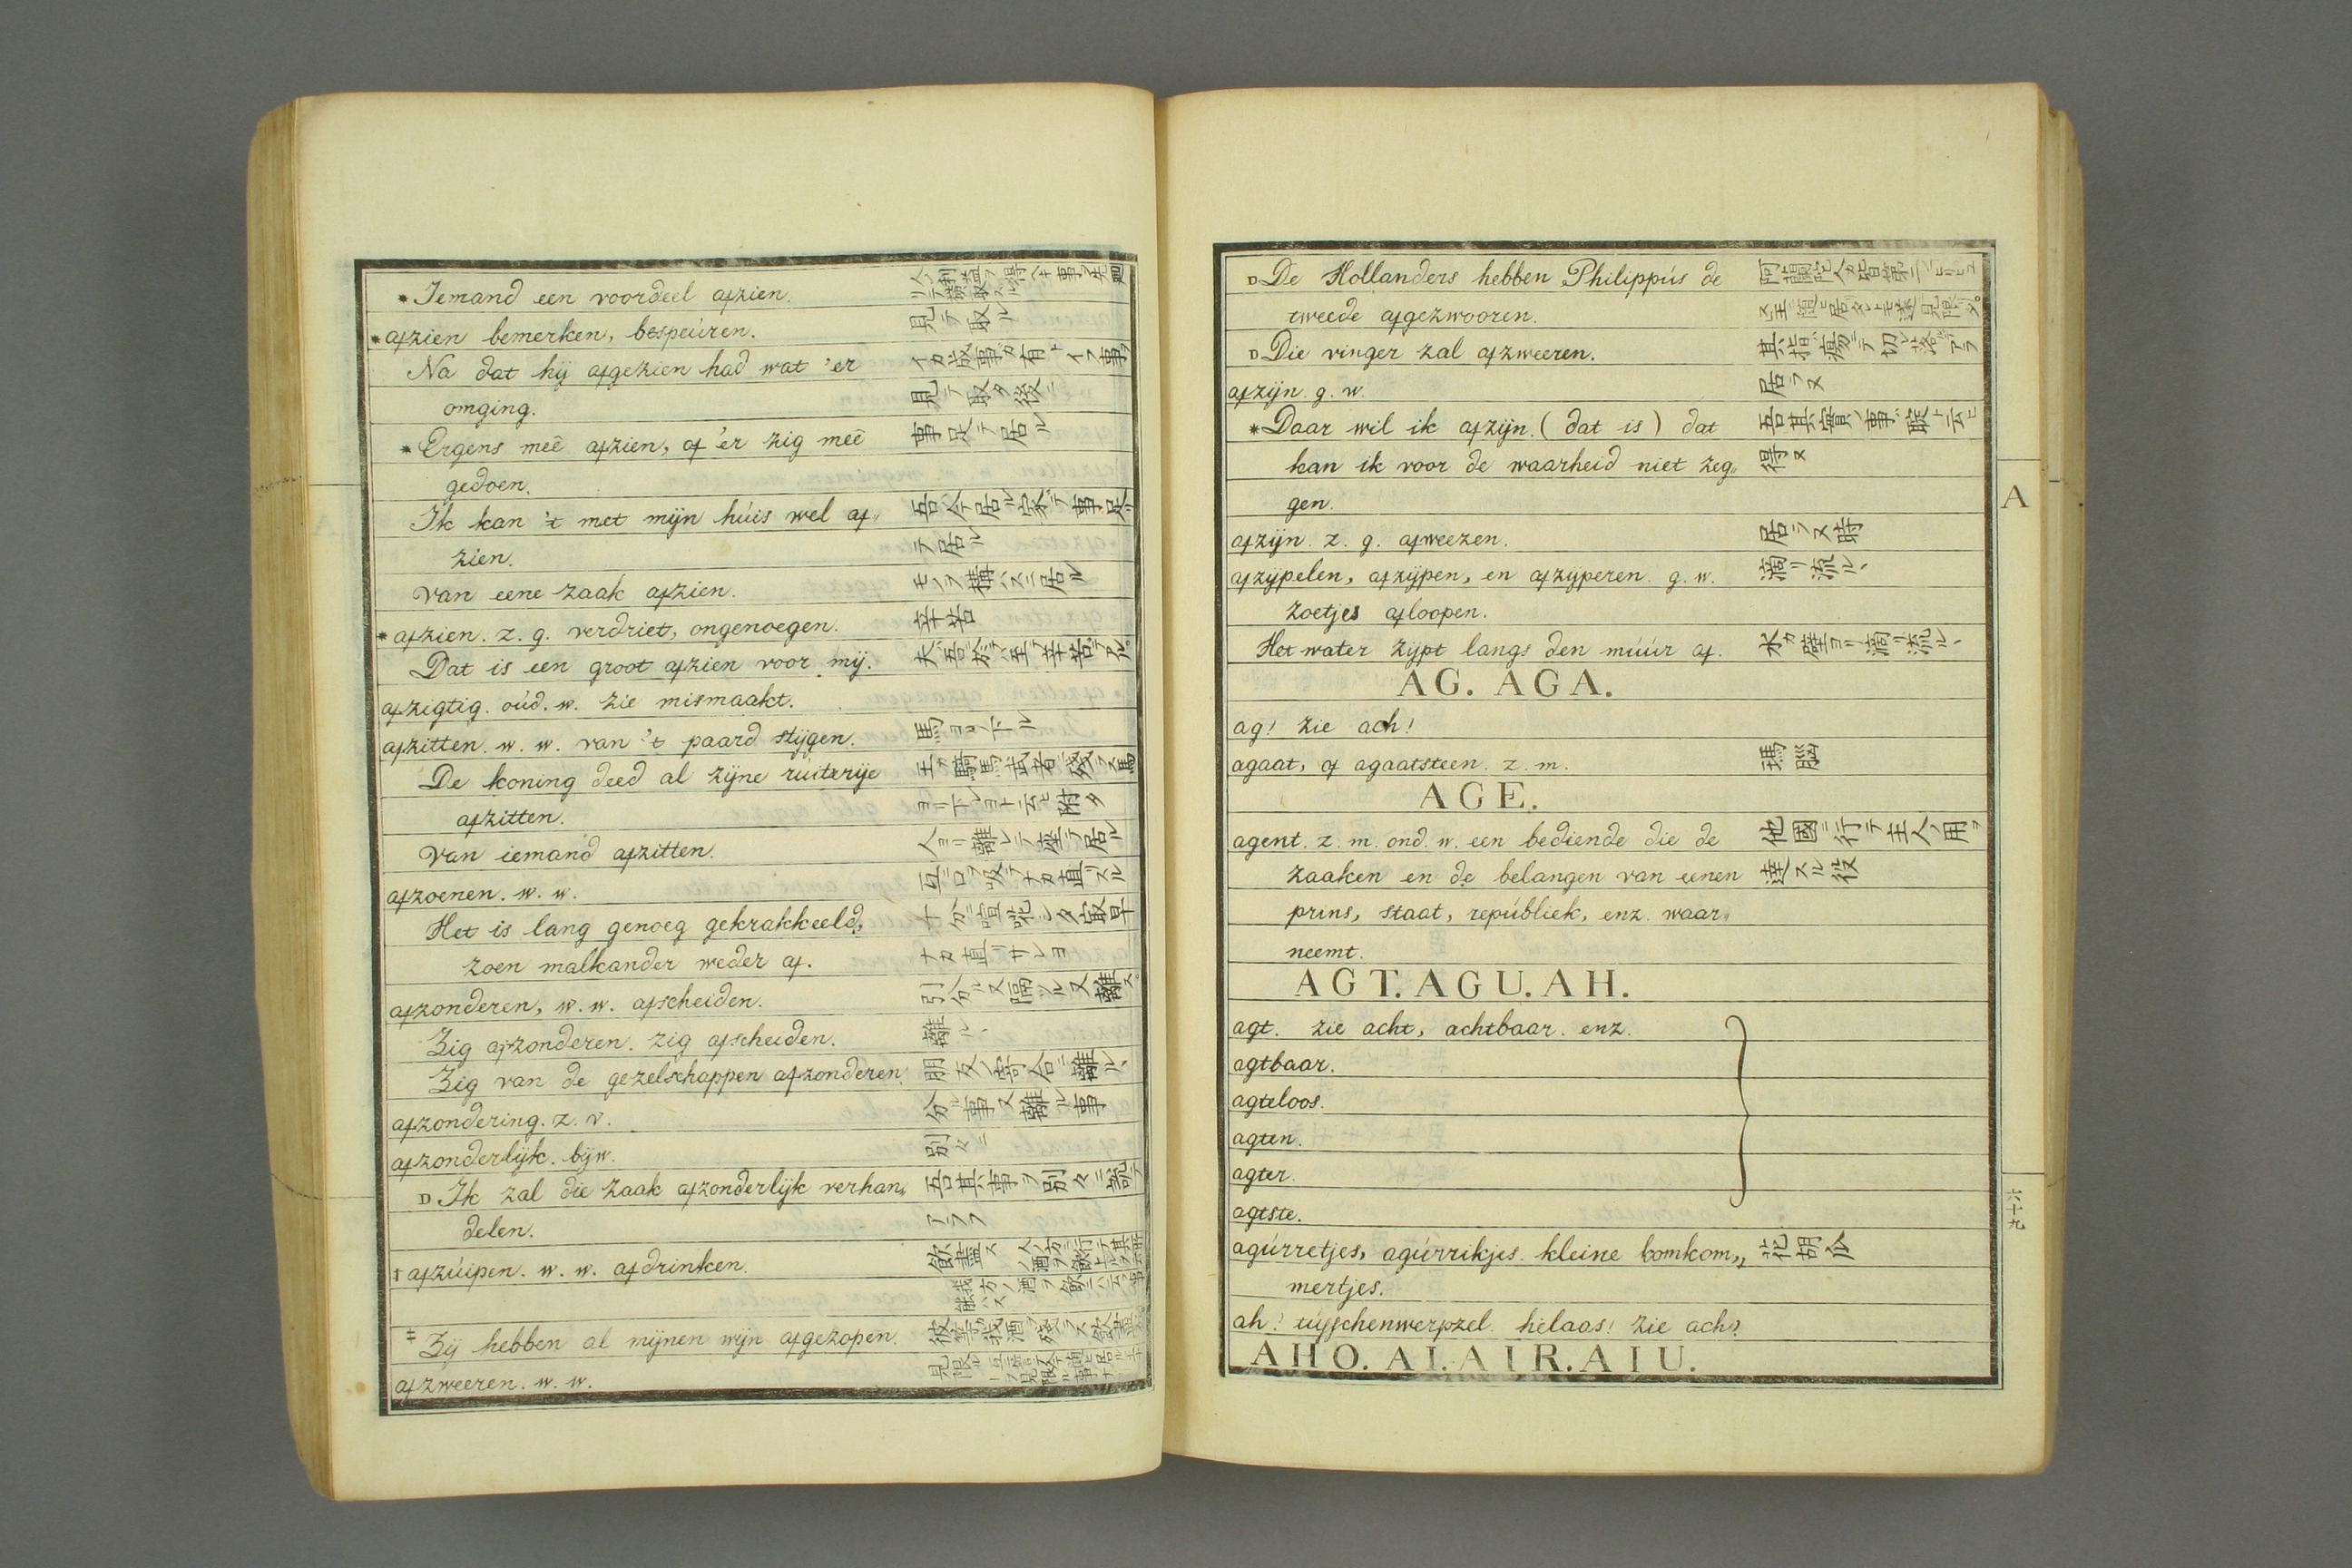 * Iemand een voordeel afzien.
* afzien bemerken, bespeúren. 見テ取ル
Na dat hij afgezien had wat 'er イカ成事カ有トイフ事ヲ
omging. 見テ取タ後ニ
* Ergens meê afzien, of 'er zig meê 事足テ居ル
gedoen.
Ik kan 't met mijn húis wel af„ 吾今居ル家デ事足リ
zien. テ居ル
Van eene zaak afzien. モノヲ構ハズニ居ル
* afzien. z. g. verdriet, ongenoegen. 辛苦
Dat is een groot afzien voor mij.
afzigtig. oúd. w. zie mismaakt.
afzitten. w. w. van 't paard stijgen. 馬ヨリ下ル
De koning deed al zijne rúiterije 王カ騎馬武者ヲ殘ラス馬
afzitten. ヨリ下レヨト云ヒ附タ
Van iemand afzitten. 人ヨリ離レテ座テ居ル
afzoenen. w. w. 互ニ口ヲ吸テナカ直リスル
Het is lang genoeg gekrakkeeld,
zoen malkander weder af. ナカ直リサレヨ
afzonderen, w. w. afscheiden. 引分ル又隔ツル又離ス
Zig afzonderen. zig afscheiden. 離ルヽ
Zig van de gezelschappen afzonderen. 朋友ノ寄合ニ離ルヽ
afzondering. z. v. 分ル事又離ル事
afzonderlijk. bijw. 別々ニ
D Ik zal die zaak afzonderlijk verhan„ 吾其事ヲ別々ニ説テ
delen. アラフ
‡ afzúipen. w. w. afdrinken. 飲盡ス
‡ Zij hebben al mijnen wijn afgezopen. 彼等我酒ヲ殘ラス飲盡タ
afzweeren. w. w. 見限ル
D De Hollanders hebben Philippús de
tweede afgezwooren.
D Die vinger zal afzweeren. 其指瘍テ切レ落ルテアラフ
afzijn. g. w. 居ラヌ
* Daar wil ik afzijn. (dat is) dat 吾其實ノ事ハ聢ト云ヒ
kan ik voor de waarheid niet zeg„ 得ヌ
gen.
afzijn. z. g. afweezen. 居ラヌ時
afzijpelen, afzijpen, en afzijperen. g. w. 滴リ流ルヽ
zoetjes afloopen.
Het water zijpt langs den múúr af. 水カ壁ヨリ滴リ流ルヽ
AG. AGA.
ag! zie ach!
agaat, of agaatsteen. z. m. 瑪瑙
AGE.
agent. z. m. ond. w. een bediende die de 他國ニ行テ主人ノ用ヲ
zaaken en de belangen van eenen 達スル役
prins, staat, repúbliek, enz. waar„
neemt.
AGT. AGU. AH.
agt. zie acht, achtbaar. enz.
agtbaar.
agteloos.
agten.
agter.
agtste.
agúrretjes, agúrrikjes. kleine komkom„ 花胡瓜
mertjes.
ah! tússchenwerpzel. helaas! zie ach!
AHO. AI. AIR. AIU.
A
六十九